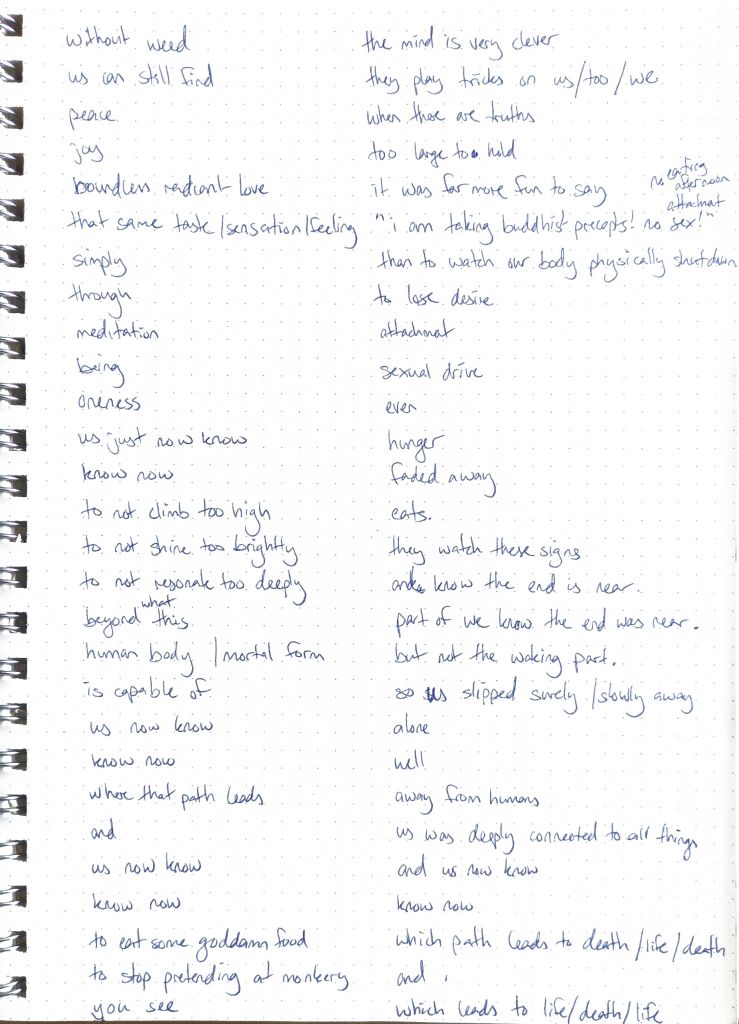 without weed
us can still find
peace
joy
boundless radiant love
that same taste/sensation/feeling
simply
through
meditation
being
oneness
us just now know
know now
to not climb too high
to not shine too brightly
to not resonate too deeply
beyond what this
human body / mortal form
is capable of
us now know
know now
where that path leads
and
us now know
know now
to eat some goddamn food
to stop pretending at monkery
you see
the mind is very clever
they play tricks on us/too/we
when there are truths
too large too hold
it was far more fun to say
no eating
afternoon
attachmat
"i am taking buddhist precepts! no sex!"
than to watch our body physically shutdown
to lose desire
attachmat
sexual drive
even
hunger
faded away
cats.
they watch these signs
and know the end is near.
part of we know the end was near.
but not the waking part.
so us slipped surely/slowly away
alone
well
away from humans
us was deeply connected to all things
and us now know
know now
which path leads to death/life/death
and
which leads to life/death/life